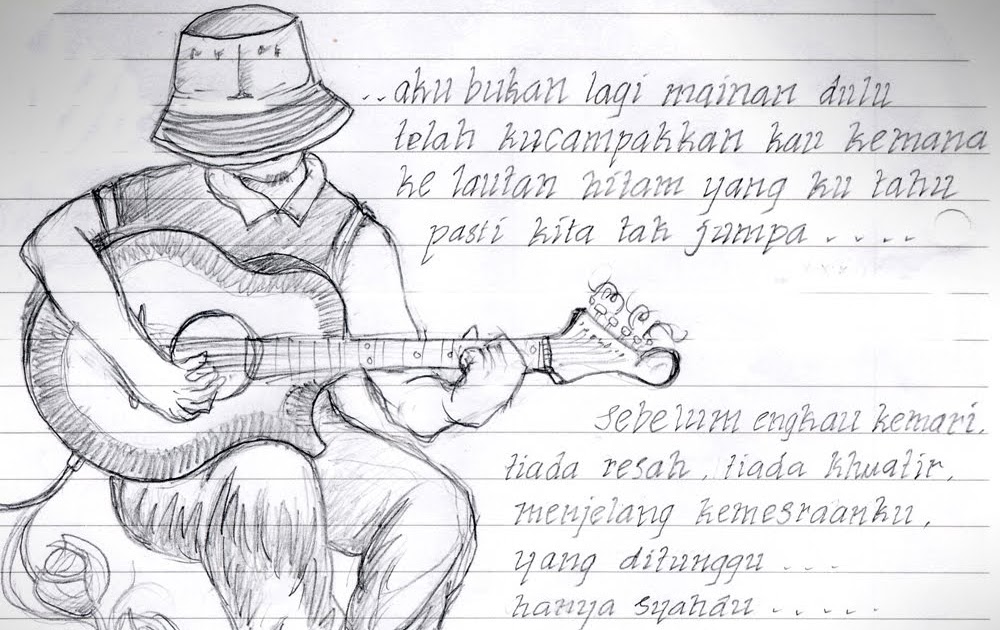 ..aku bukan lagi mainan dulu
telah kucampakkan kau kemana
ke lautan hitam yang ku tahu
pasti kita tak jumpa . . . .
sebelum engkau kemari.
tiada resah, tiada khuatir,
menjelang kemesraanku,
yang ditunggu . . .
hanya syahdu . . . . .